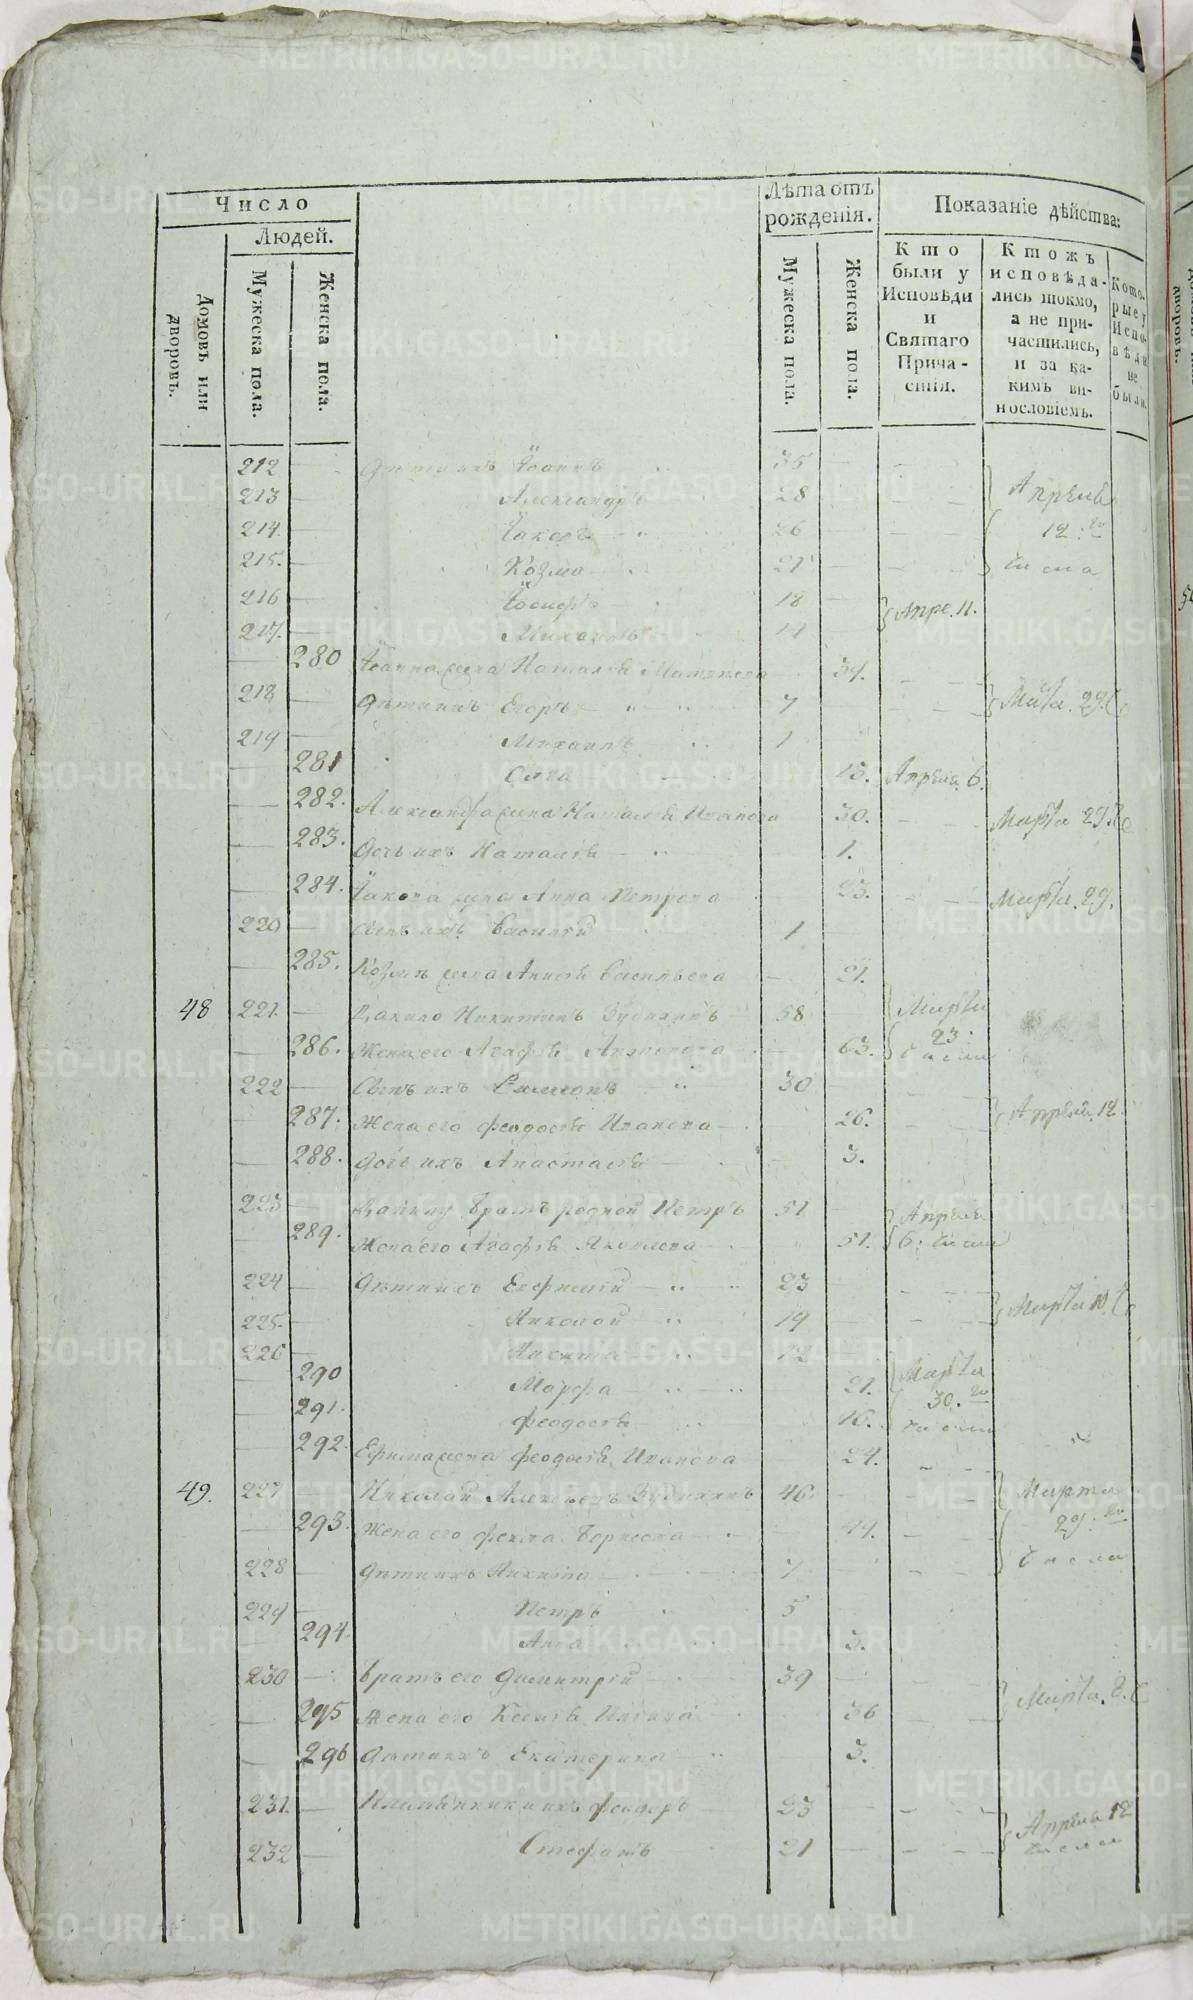 Число
Лѣта отъ рожденія.
Показаніе дѣйства:
Людей.
Домовъ или дворовъ.
Мужеска пола.
Женска пола.
Мужеска пола.
Женска пола.
Кто были у Исповѣди и Святаго Причастія.
Ктожъ исповѣдались токмо, а не причастились, и за какимъ винословіемъ.
Которые у Исповѣди не были.
212 — Дѣти ихъ Іоаннъ 35 —
213 — Александръ 28 — Апрѣля
214. — Іаковъ 26 — 12.го
215. — Козма 21 — числа
216 — Іосифъ 18 —
217. — Михаилъ — Апре. 11.
— 280 Іоанна жена Наталія 34.
218 — Дѣти ихъ Егоръ 7 — Марта. 29.
219 — Михаилъ 1
— 281 Олга 13. Апрѣля 6.
— 282. Александра жена Наталія Иванова 30. Марта 29.
— 283. Дочь ихъ Наталія 1.
— 284. Іакова жена Анна Петрова 23. Марта. 29.
220 — Сынъ ихъ Василій 1
— 285. Козмы жена Васильева 21.
48 221. — Данило Никитинъ 58 Марта
— 286. Жена его Агафія 63. 23. числа
222 — Сынъ ихъ Симеонъ 30
— 287. Жена его Феодосія Иванова 26. Апрѣля. 12.
— 288. Дочь ихъ Анастасія 3.
223 — Данилу братъ родной Петръ 51 Апрѣля
— 289. Жена его Агафія Яковлева 51. 6. числа
224 — Дѣти ихъ 23
225. — Николай 19 Марта 10.
226 — Никита 12
— 290 Марфа 21. Марта
— 291. Феодосія 16. 30.го числа
— 292. Ефима жена Феодосія Иванова 24.
49. 227 — Николай 46 Марта
— 293. Жена его Фекла Борисова 44. 29.го
228 — Дѣти ихъ Никита 7 числа
229 — Петръ 5
— 294. Анна 3.
230 — Братъ его Димитрій 39
— 295 Жена его Ксенія 36 Марта. 8.
— 296 Дѣти ихъ Екатерина 3.
231. — Племянники ихъ Феодоръ 23 Апрѣля 12
232 — Стефанъ 21 числа
METRIKI.GASO-URAL.RU